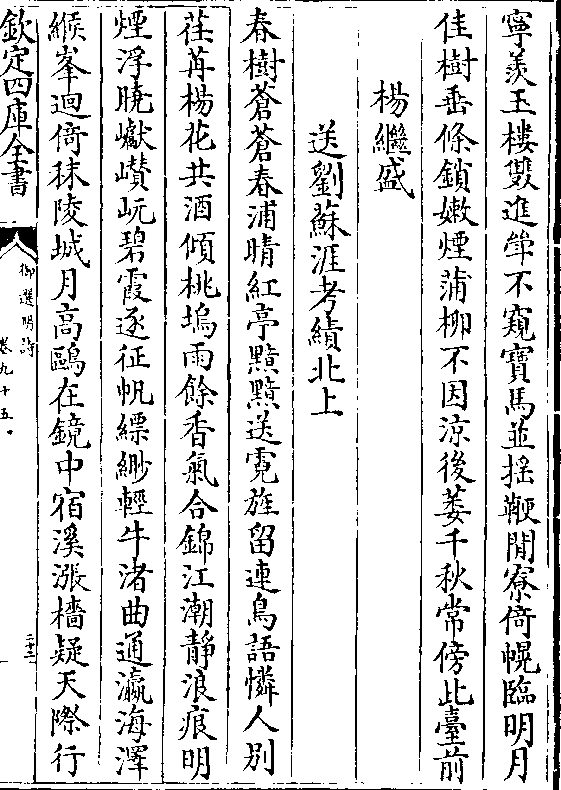 寧羡玉樓雙進斚不窺寳馬並揺鞭閒寮倚幌臨明月
佳樹垂條鎖嫩煙蒲栁不因涼後萎千秋常傍此臺前
楊繼盛
送劉蘇涯考績北上
春樹蒼蒼春浦晴紅亭㸃㸃送霓旌留連鳥語憐人別
荏苒楊花共酒傾桃塢雨餘香氣合錦江潮靜浪痕明
煙浮曉巘巑岏碧霞逐征帆縹緲輕牛渚曲通瀛海澤
緱峯迴倚秣陵城月高鷗在鏡中宿溪漲檣疑天際行
欽定四庫全書
御選明詩
卷九十五
二十三